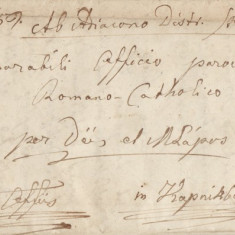 Ab Archiacono Distr.
rabili Officio paro
Romano-Catholico
per Déés, et M Lápos
in Kapnikb